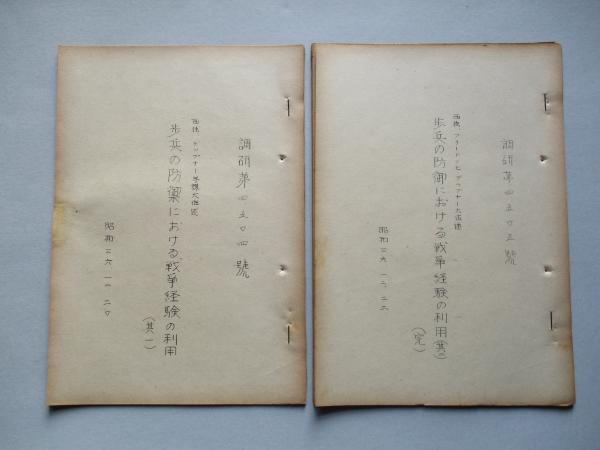 調研第四五〇四號
西独 デップナー予備大佐述
歩兵の防禦における戦争経験の利用
(其一)
昭和二六 一二 二〇
調研第四五〇五號
西獨 フリードリッヒ デップナー大佐述
歩兵の防御における戦争経験の利用(其二)
(完)
昭和二六 一二 二二